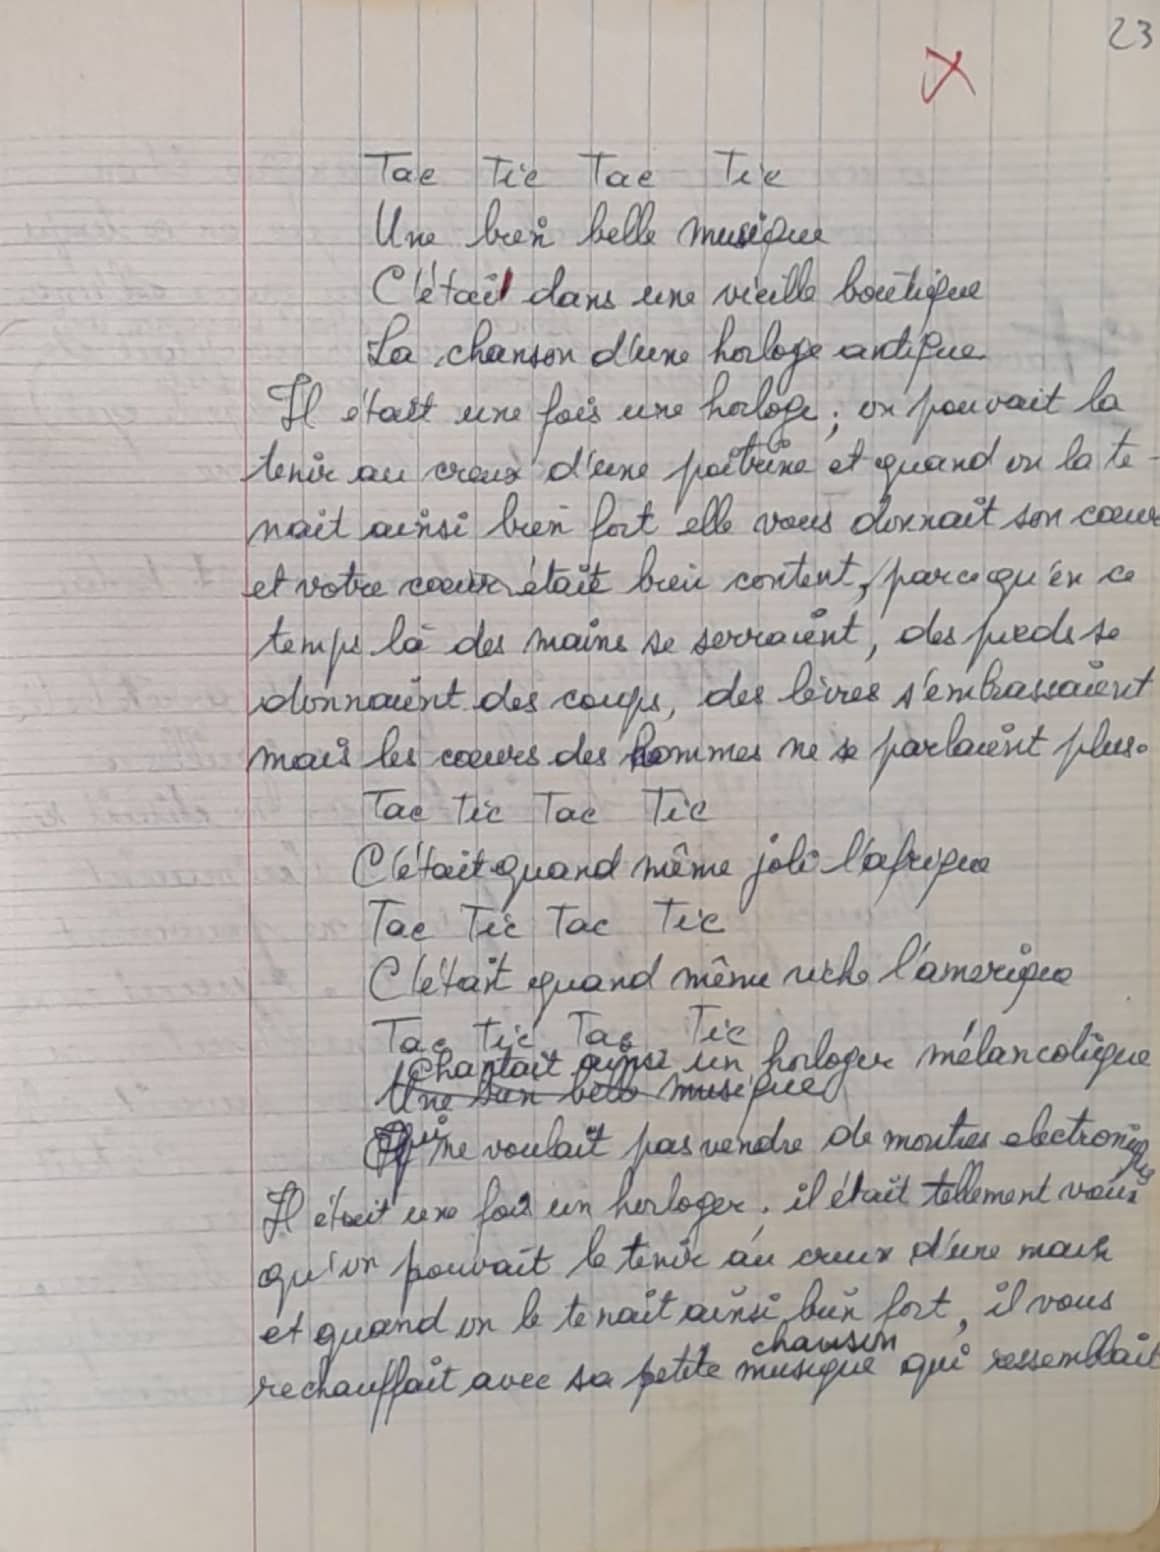 23
Tac Tic Tac Tic
Une bien belle musique
C'était dans une vieille boutique
La chanson d'une horloge antique
Il était une fois une horloge ; on pouvait la
tenir au creux d'une poitrine et quand on la te-
nait ainsi bien fort elle vous donnait son coeur
et votre coeur était bien content, parcequ'en ce
temps là des mains se serraient, des pieds se
donnaient des coups, des lèvres s'embrassaient
mais les coeurs des hommes ne se parlaient plus.
Tac Tic Tac Tic
C'était quand même joli l'afrique
Tac Tic Tac Tic
C'était quand même riche l'amerique
Tac Tic Tac Tic
Chantait ainsi un horloger mélancolique
Une bien belle musique
Qui ne voulait pas vendre de montres electroniques
Il était une fois un horloger. il était tellement vieux
qu'on pouvait le tenir au creux d'une main
et quand on le tenait ainsi bien fort, il vous
chanson
rechauffait avec sa petite musique qui ressemblait